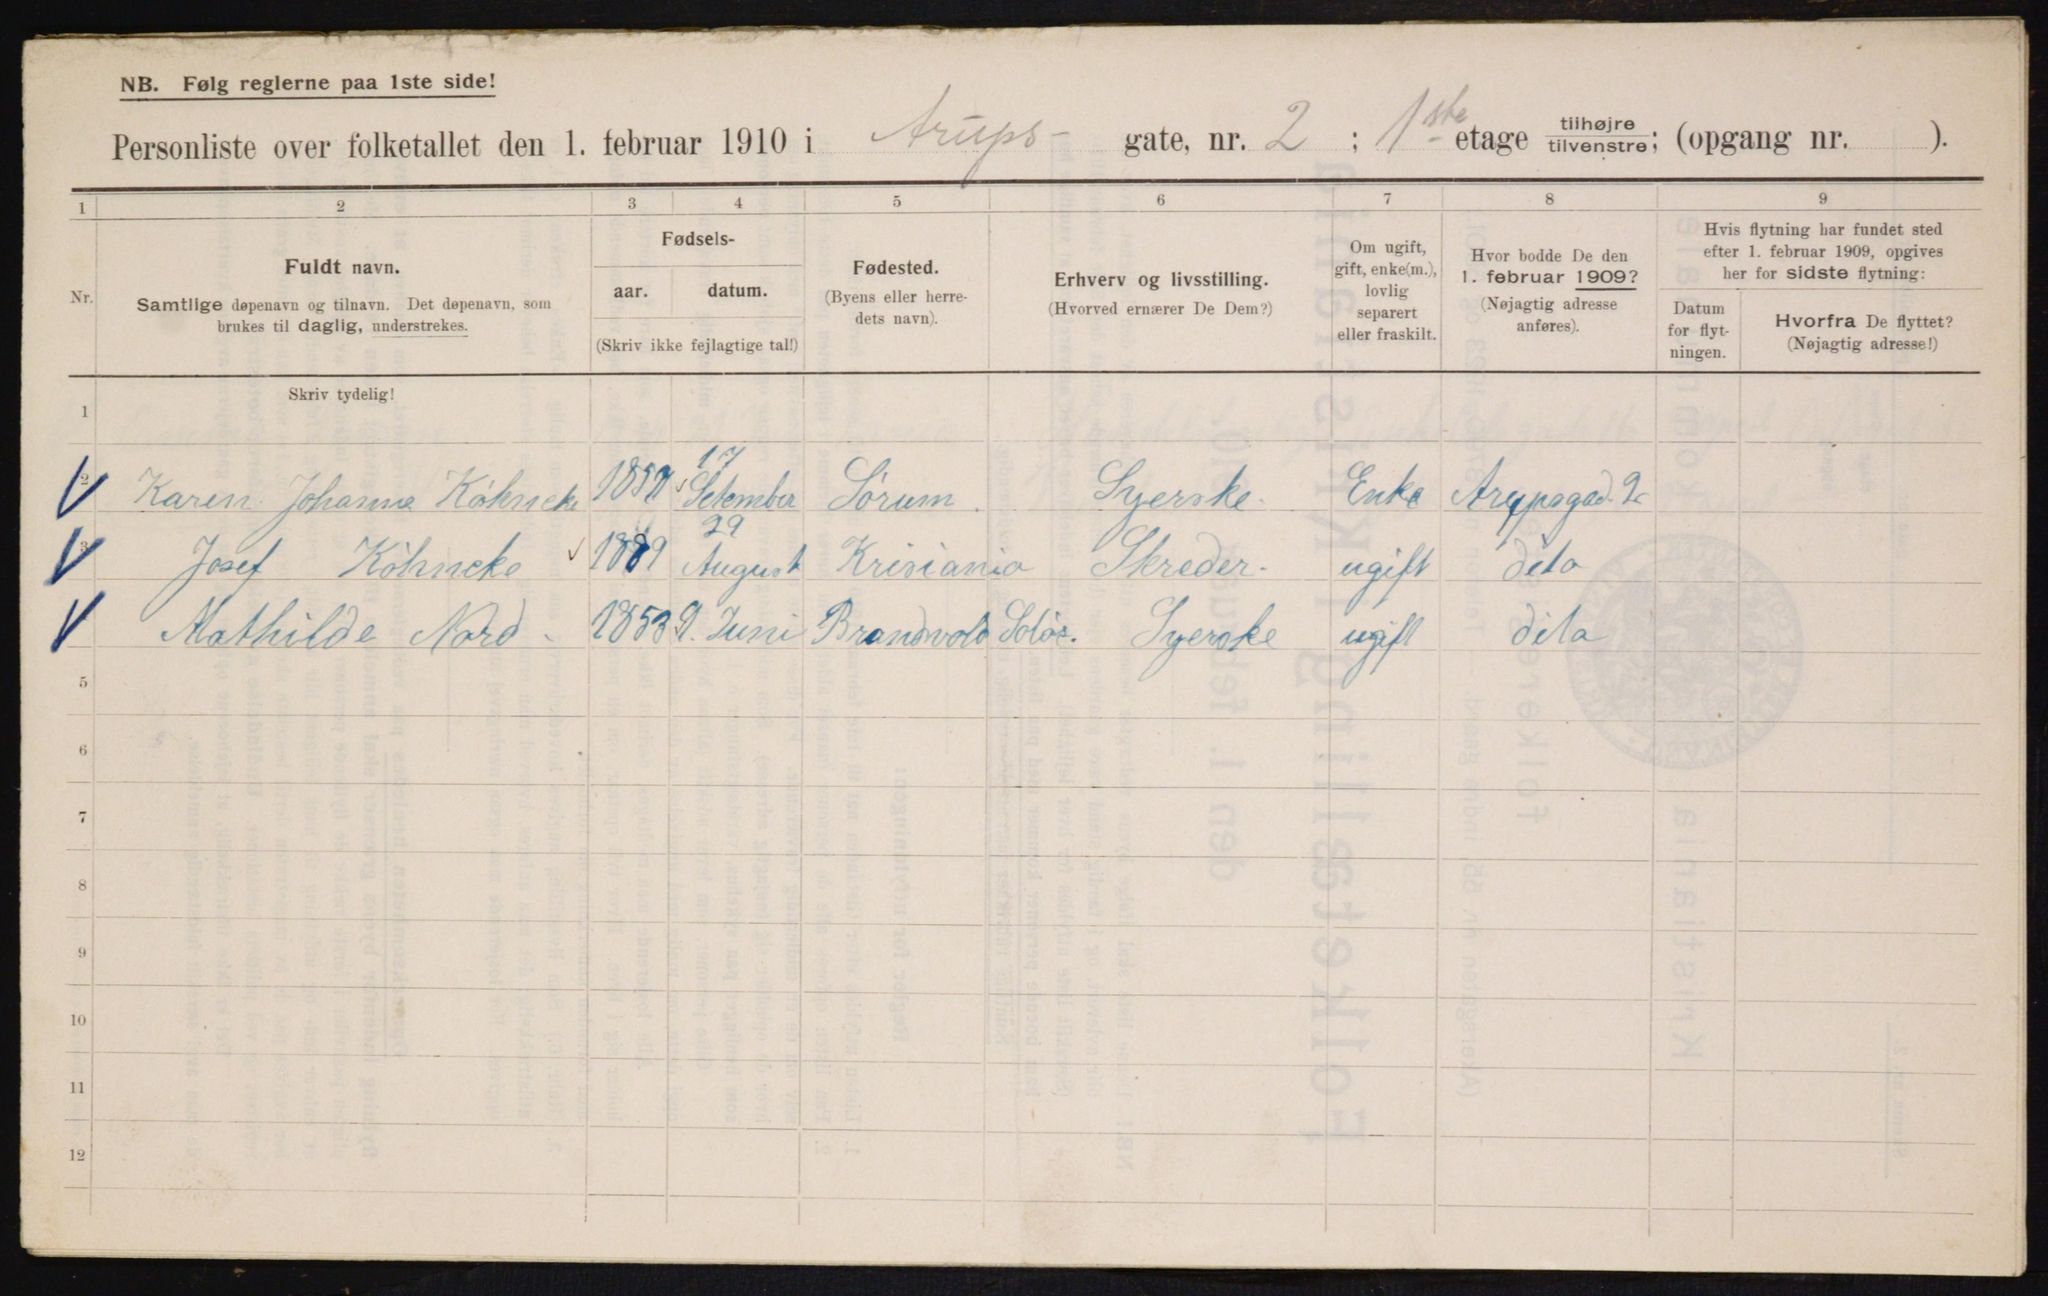 NB. Følg reglerne paa 1ste side!
Personliste over folketallet den 1. februar 1910 i Arups- gate, nr. 2 ; 1ste etage tilhøjre/tilvenstre; (opgang nr. ).
1 2 3 4 5 6 7 8 9
Nr.
Fuldt navn.
Samtlige døpenavn og tilnavn. Det døpenavn, som
brukes til daglig, understrekes.
Fødsels-
aar. datum.
(Skriv ikke fejlagtige tal!)
Fødested.
(Byens eller herre-
dets navn).
Erhverv og livsstilling.
(Hvorved ernærer De Dem?)
Om ugift,
gift, enke(m.),
lovlig
separert
eller fraskilt.
Hvor bodde De den
1. februar 1909?
(Nøjagtig adresse
anføres).
Hvis flytning har fundet sted
efter 1. februar 1909, opgives
her for sidste flytning:
Datum
for flyt-
ningen.
Hvorfra De flyttet?
(Nøjagtig adresse!)
Skriv tydelig!
1
2 Karen Johanna Köhncke 17 Setember Sørum Syerske Enke Arupsgad. 2
3 Josef Köhncke 1889 29 August Krisiania Skreder ugift dito
Mathilde Nord 1853 9. Juni Brandvold Solør. Syerske ugift dito
5
6
7
8
9
10
11
12